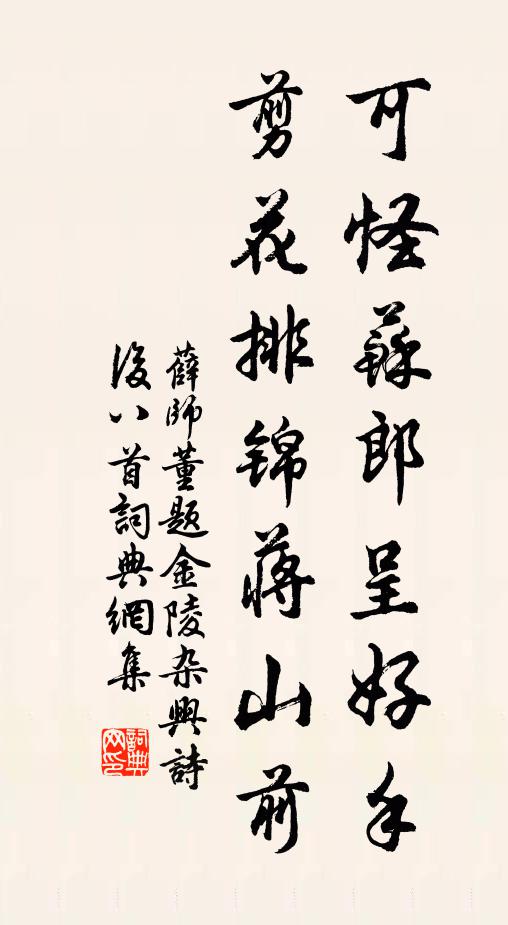 可怪蘇郎呈好手
剪花排錦蔣山前
薛師董題金陵杂興詩
後八首詞典網集
詞典网印